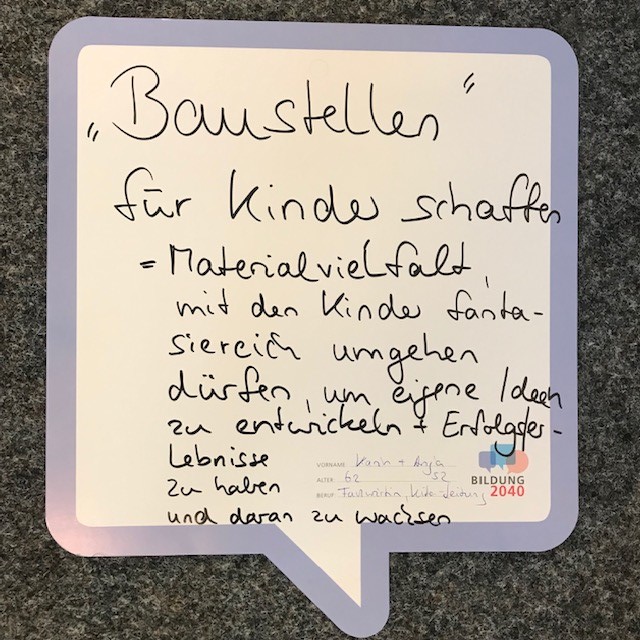 „Baustellen“
für Kinder schaffen
= Materialvielfalt,
mit der Kinder fanta-
siereich umgehen
dürfen, um eigene Ideen
zu entwickeln + Erfolgser-
lebnisse
zu haben
und daran zu wachsen
VORNAME Karin + Anja
ALTER 62 52
BERUF Kita-Leitung
BILDUNG
2040